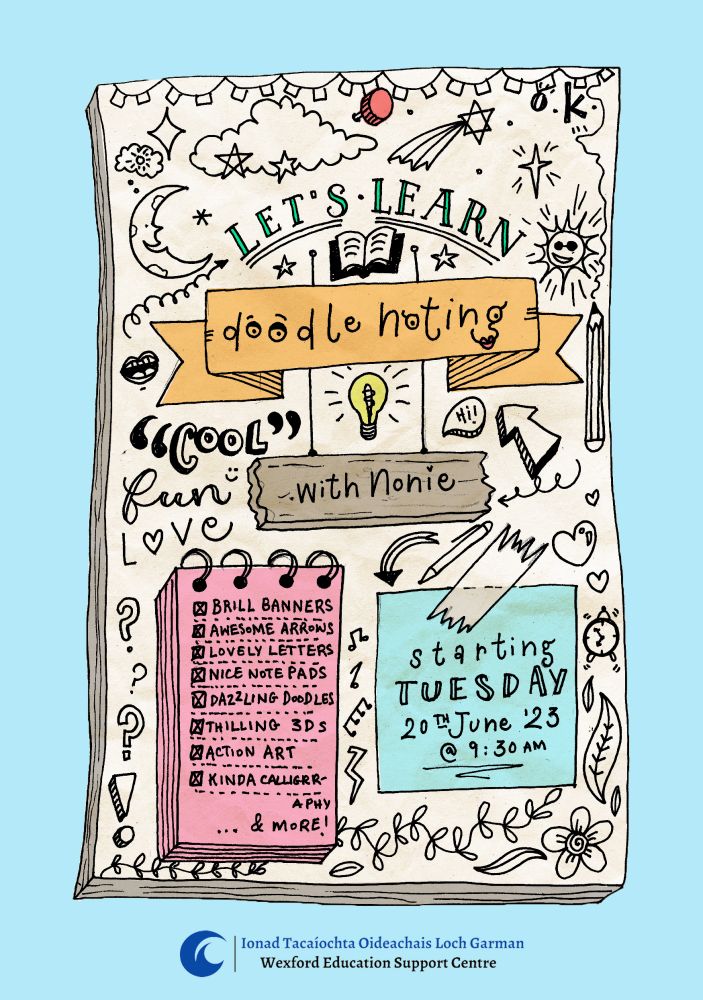 ö.k.
LET'S · LEARN
doodle noting
Hi!
"COOL"
fun
with Nonie
LOVE
BRILL BANNERS
AWESOME ARROWS
LOVELY LETTERS
NICE NOTE PADS
DAZZLING DOODLES
THILLING 3DS
ACTION ART
KINDA CALLIGRR-
APHY
... & MORE!
starting
TUESDAY
20TH June '23
@ 9:30 AM
Ionad Tacaíochta Oideachais Loch Garman
Wexford Education Support Centre